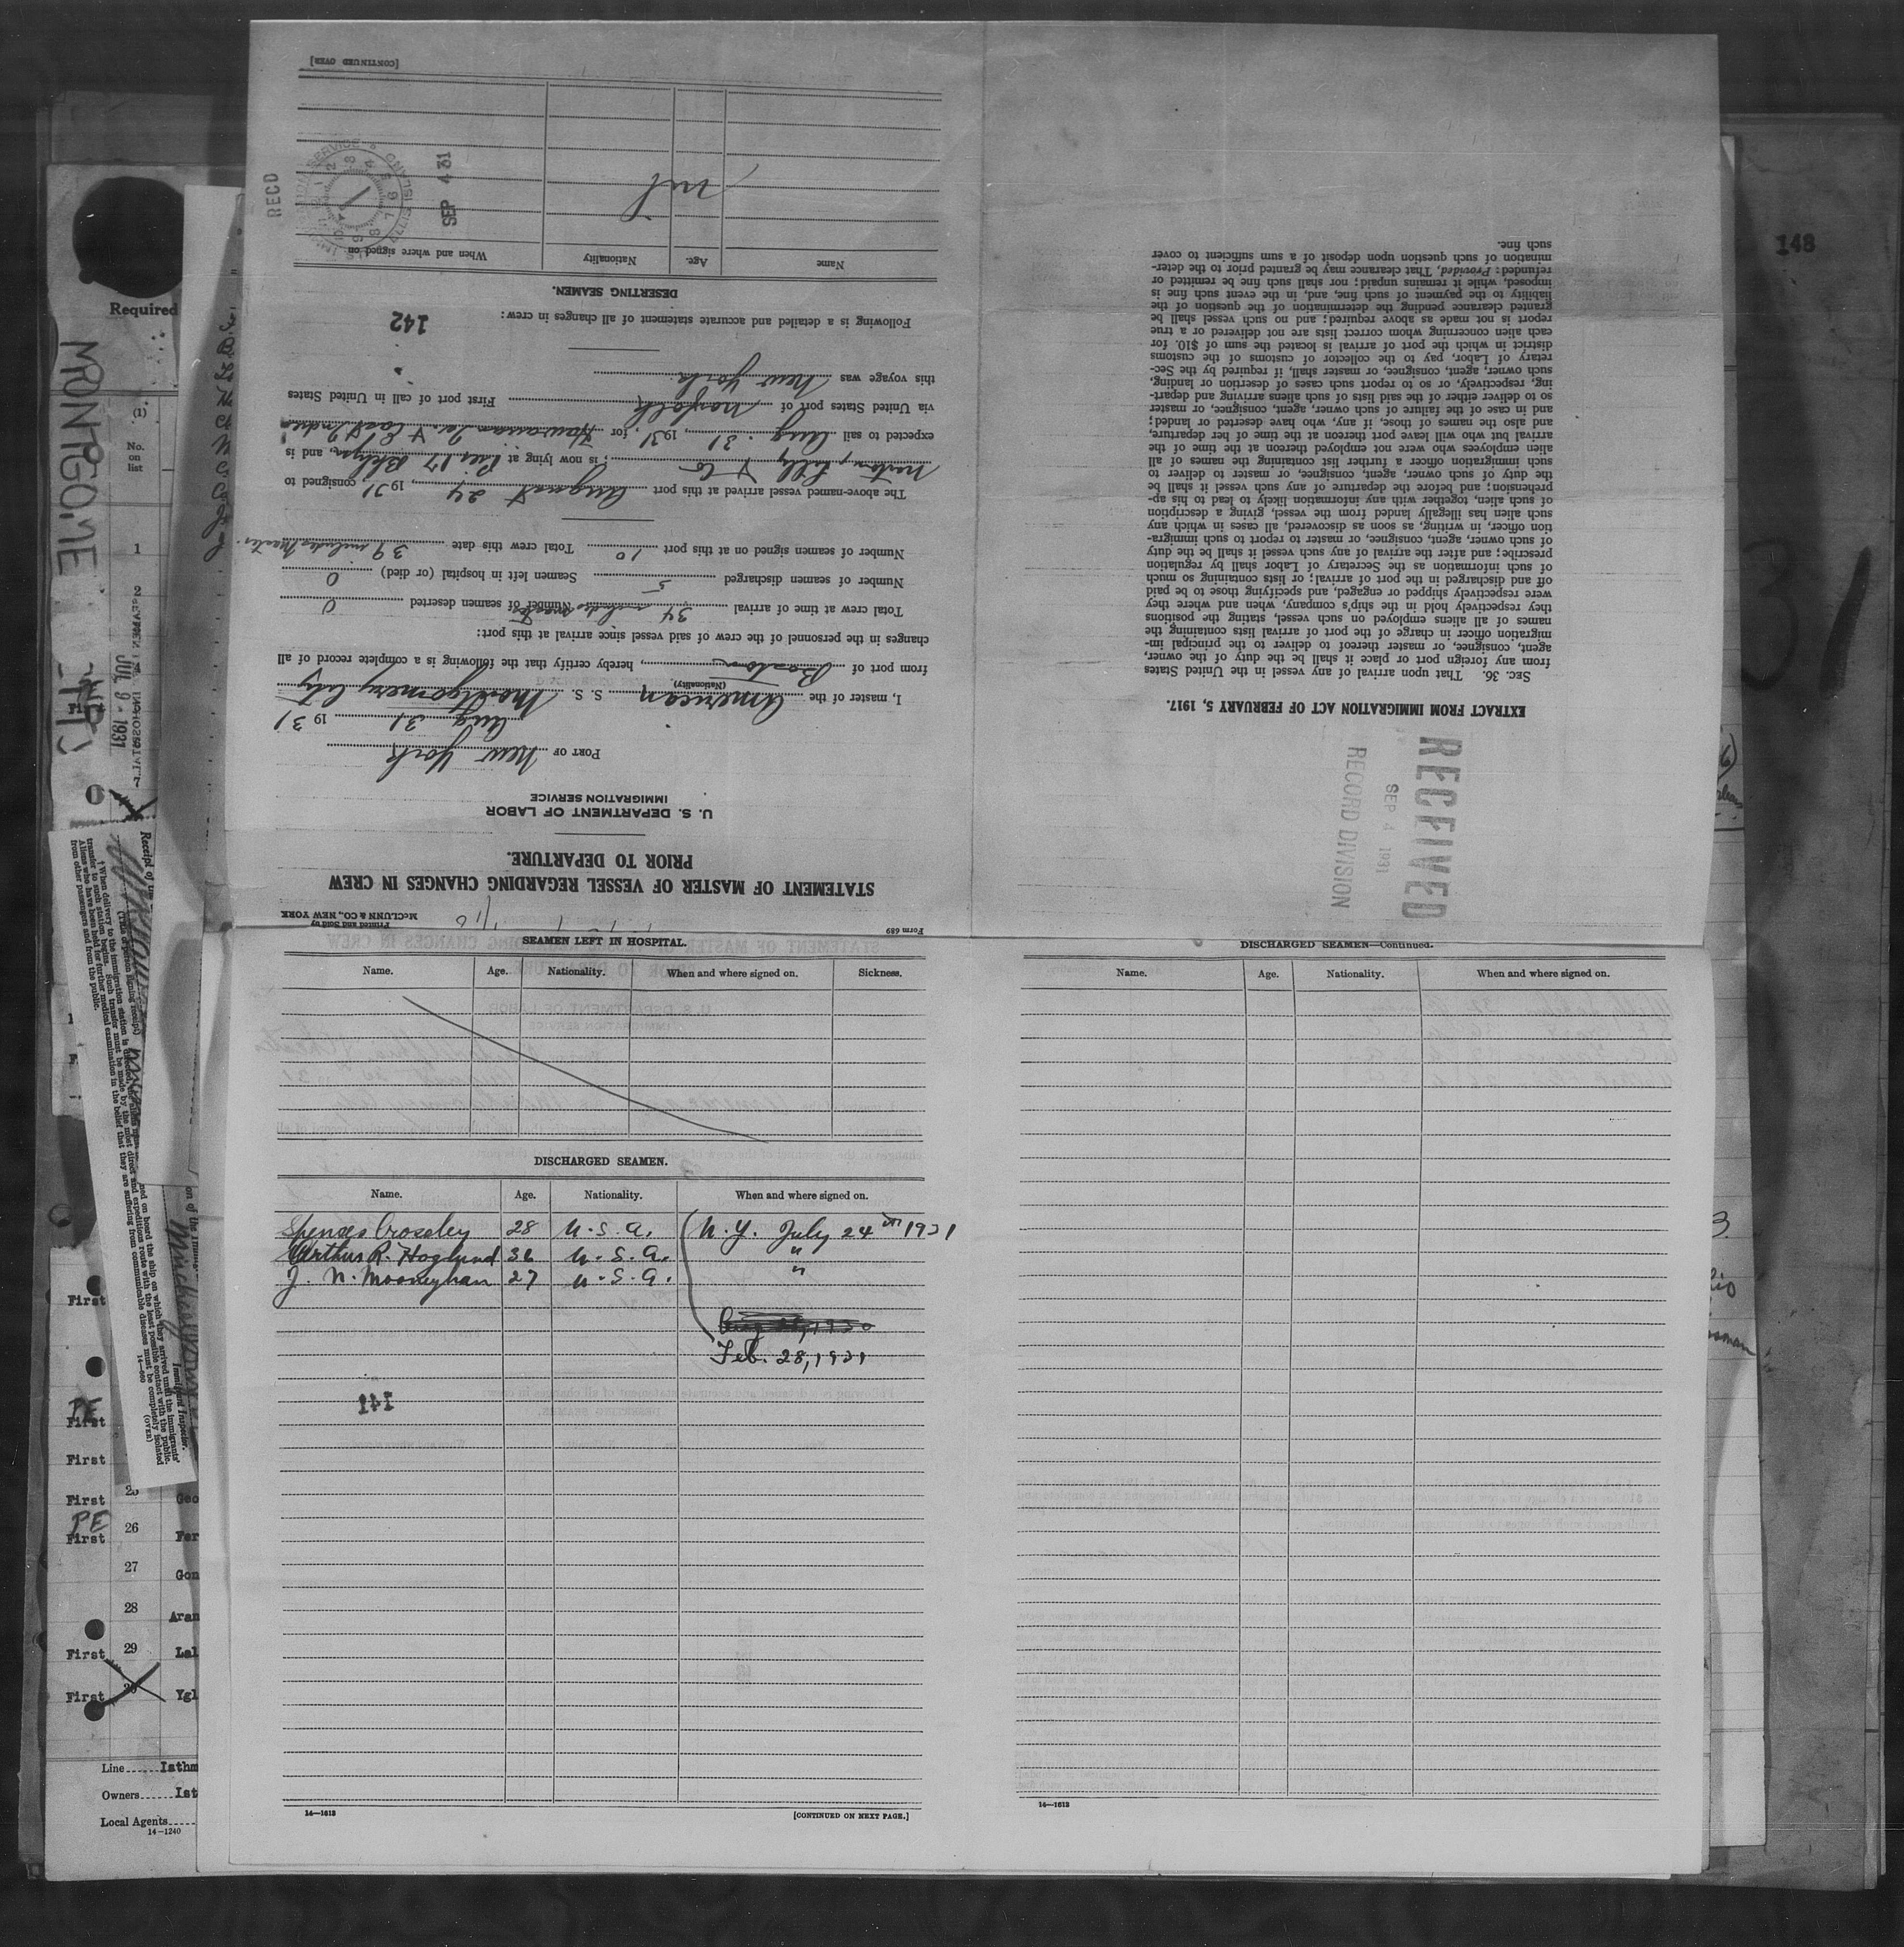 Form 689
Printed and Sold by
McCLUNN & CO., NEW YORK
STATEMENT OF MASTER OF VESSEL REGARDING CHANGES IN CREW
PRIOR TO DEPARTURE.
U. S. DEPARTMENT OF LABOR
IMMIGRATION SERVICE
PORT OF New York
Aug 31 1931
I, master of the American S. S. Montgomery City
(Nationality)
from port of Boston, hereby certify that the following is a complete record of all
changes in the personnel of the crew of said vessel since arrival at this port:
Total crew at time of arrival 34 includes master Number of seamen deserted 0
Number of seamen discharged 5 Seamen left in hospital (or died) 0
Number of seamen signed on at this port 10 Total crew this date 39 includes Master.
The above-named vessel arrived at this port August 24, 1931 consigned to
Norton, Lilly & Co; is now lying at Pier 17 Bklyn, and is
expected to sail Aug. 31, 1931, for Hawaiian Isls & East Indies
via United States port of Norfolk First port of call in United States
this voyage was New York.
Following is a detailed and accurate statement of all changes in crew:
142
DESERTING SEAMEN.
Name Age. Nationality When and where signed on
nil
SEP 4 31
RECD
ELLIS ISLAND
[CONTINUED OVER]
RECEIVED
SEP 4 1931
RECORD DIVISION
EXTRACT FROM IMMIGRATION ACT OF FEBRUARY 5, 1917.
SEC. 36. That upon arrival of any vessel in the United States
from any foreign port or place it shall be the duty of the owner,
agent, consignee, or master thereof to deliver to the principal im-
migration officer in charge of the port of arrival lists containing the
names of all aliens employed on such vessel, stating the positions
they respectively hold in the ship's company, when and where they
were respectively shipped or engaged, and specifying those to be paid
off and discharged in the port of arrival; or lists containing so much
of such information as the Secretary of Labor shall by regulation
prescribe; and after the arrival of any such vessel it shall be the duty
of such owner, agent, consignee, or master to report to such immigra-
tion officer, in writing, as soon as discovered, all cases in which any
such alien has illegally landed from the vessel, giving a description
of such alien, together with any information likely to lead to his ap-
prehension; and before the departure of any such vessel it shall be
the duty of such owner, agent, consignee, or master to deliver to
such immigration officer a further list containing the names of all
alien employees who were not employed thereon at the time of the
arrival but who will leave port thereon at the time of her departure,
and also the names of those, if any, who have deserted or landed;
and in case of the failure of such owner, agent, consignee, or master
so to deliver either of the said lists of such aliens arriving and depart-
ing, respectively, or so to report such cases of desertion or landing,
such owner, agent, consignee, or master shall, if required by the Sec-
retary of Labor, pay to the collector of customs of the customs
district in which the port of arrival is located the sum of $10. for
each alien concerning whom correct lists are not delivered or a true
report is not made as above required; and no such vessel shall be
granted clearance pending the determination of the question of the
liability to the payment of such fine, and, in the event such fine is
imposed, while it remains unpaid; nor shall such fine be remitted or
refunded: Provided, That clearance may be granted prior to the deter-
mination of such question upon deposit of a sum sufficient to cover
such fine.
SEAMEN LEFT IN HOSPITAL.
Name. Age. Nationality. When and where signed on. Sickness.
DISCHARGED SEAMEN.
Name. Age. Nationality. When and where signed on.
Spencer Croseley 28 U.S.A. N.Y. July 24th 1931
Arthur R. Hoglund 36 U.S.A. "
J. N. Mooneyhan 27 U.S.A. "
Feb. 28, 1931
141
14—1613
[CONTINUED ON NEXT PAGE.]
DISCHARGED SEAMEN—Continued.
Name. Age. Nationality. When and where signed on.
14—1613
148
Required
(1)
No.
on
list
1
2
JUL 9 - 1931
First
First
First
First
PE
First
First
First
26
27
28
29
Geo
Fer
Gon
Aran
Lal
Ygl
Line Isthm
Owners Ist
Local Agents
14-1240